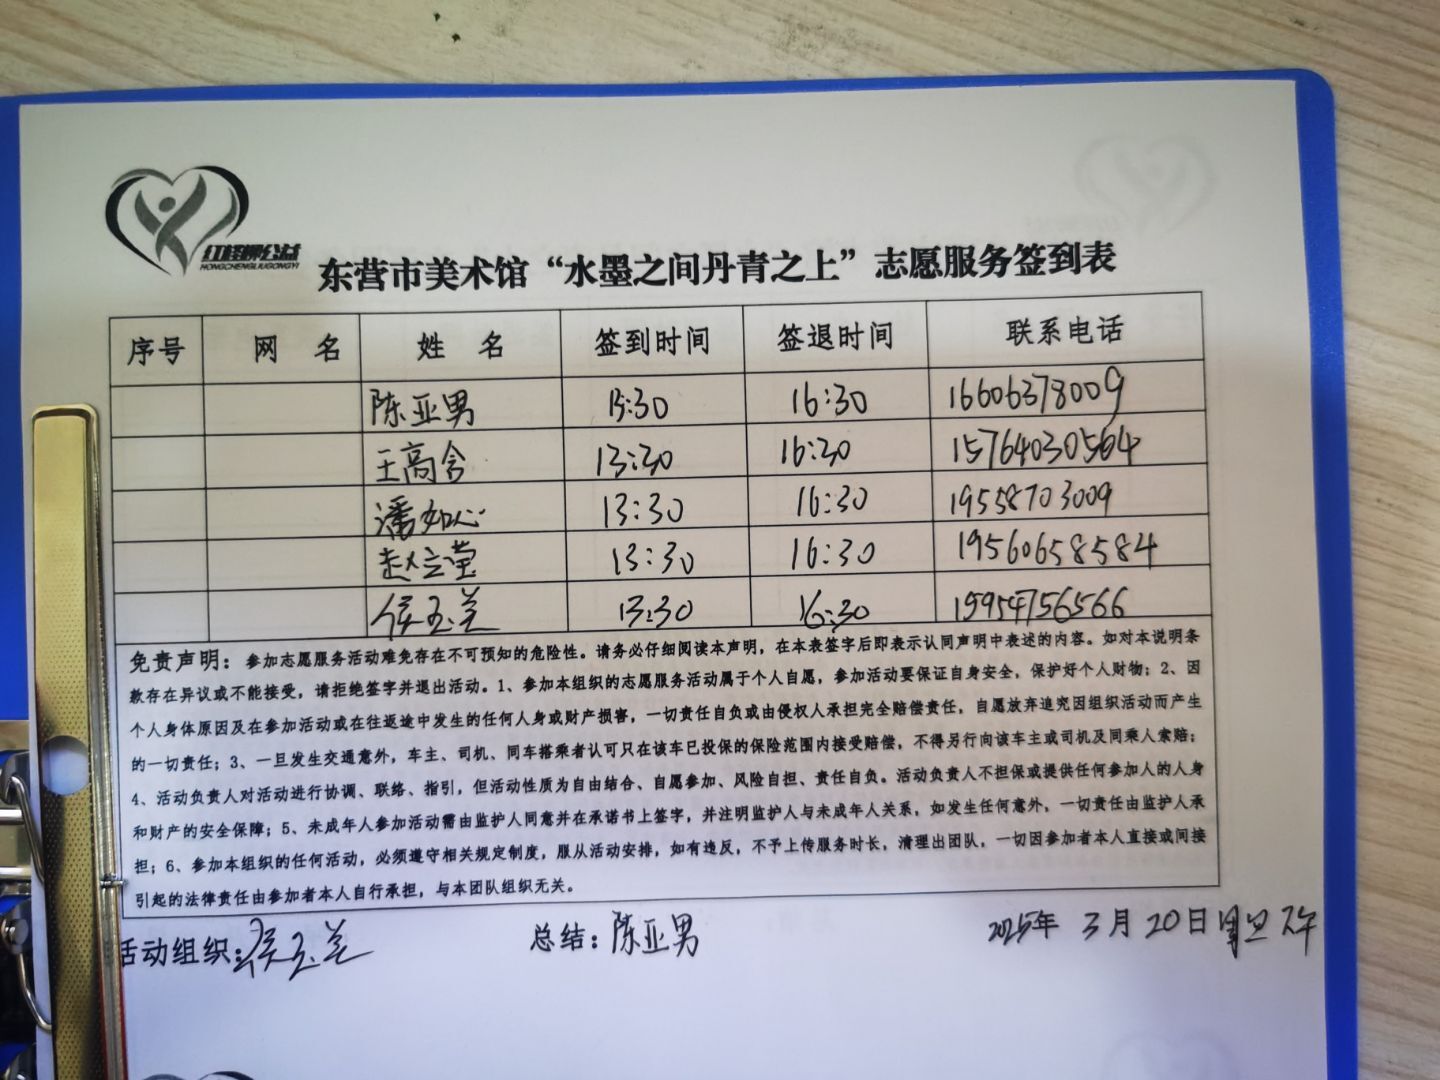 红柽柳公益
HONGCHENGLIUGONGYI
东营市美术馆“水墨之间丹青之上”志愿服务签到表
序号 网 名 姓 名 签到时间 签退时间 联系电话
陈亚男 13:30 16:30 16606378009
王高含 13:30 16:30 15764030564
潘如心 13:30 16:30 19558703009
赵立莹 13:30 16:30 19560658584
侯玉兰 13:30 16:30 15954756566
免责声明：参加志愿服务活动难免存在不可预知的危险性。请务必仔细阅读本声明，在本表签字后即表示认同声明中表述的内容。如对本说明条
款存在异议或不能接受，请拒绝签字并退出活动。1、参加本组织的志愿服务活动属于个人自愿，参加活动要保证自身安全，保护好个人财物；2、因
个人身体原因及在参加活动或在往返途中发生的任何人身或财产损害，一切责任自负或由侵权人承担完全赔偿责任，自愿放弃追究因组织活动而产生
的一切责任；3、一旦发生交通意外，车主、司机、同车搭乘者认可只在该车已投保的保险范围内接受赔偿，不得另行向该车主或司机及同乘人索赔；
4、活动负责人对活动进行协调、联络、指引，但活动性质为自由结合、自愿参加、风险自担、责任自负。活动负责人不担保或提供任何参加人的人身
和财产的安全保障；5、未成年人参加活动需由监护人同意并在承诺书上签字，并注明监护人与未成年人关系，如发生任何意外，一切责任由监护人承
担；6、参加本组织的任何活动，必须遵守相关规定制度，服从活动安排，如有违反，不予上传服务时长，清理出团队，一切因参加者本人直接或间接
引起的法律责任由参加者本人自行承担，与本团队组织无关。
活动组织：侯玉兰 总结：陈亚男 2025年 3月 20日 下午